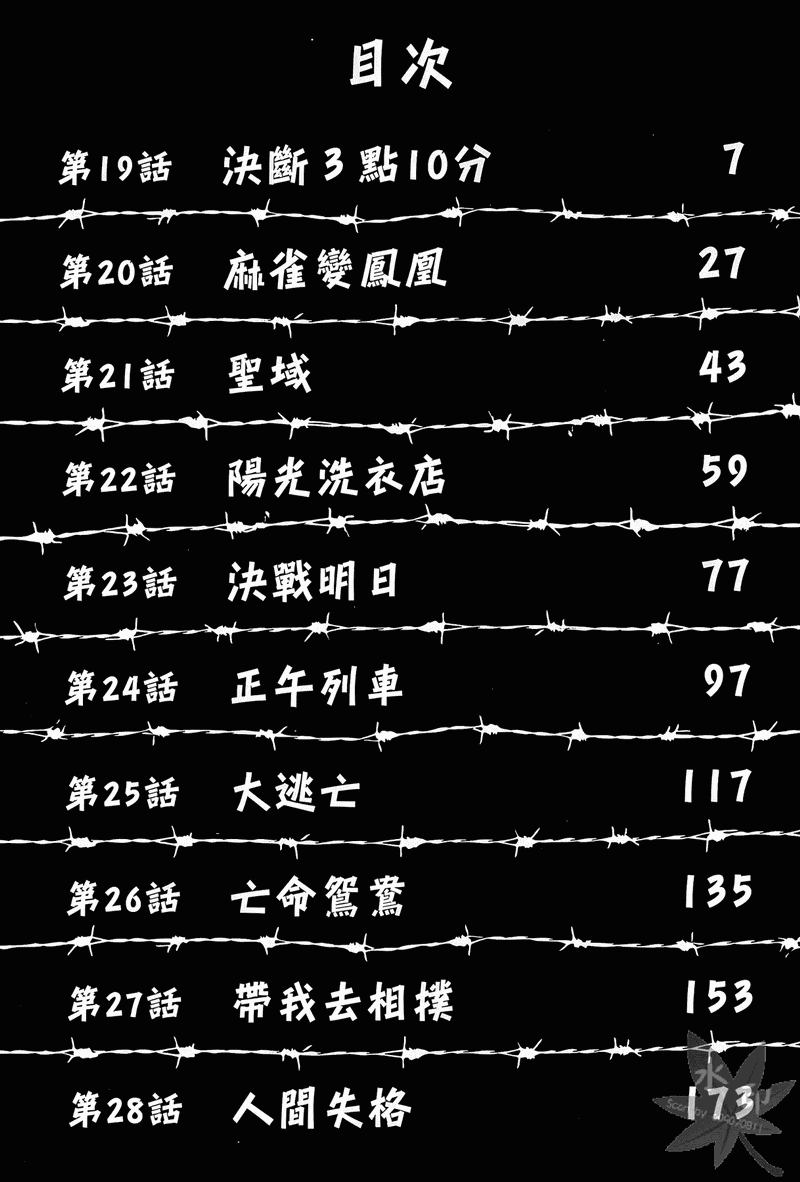 目次
第19話 決斷3點10分 7
第20話 麻雀變鳳凰 27
第21話 聖域 43
第22話 陽光洗衣店 59
第23話 決戰明日 77
第24話 正午列車 97
第25話 大逃亡 117
第26話 亡命鴛鴦 135
第27話 帶我去相撲 153
第28話 人間失格 173
水印